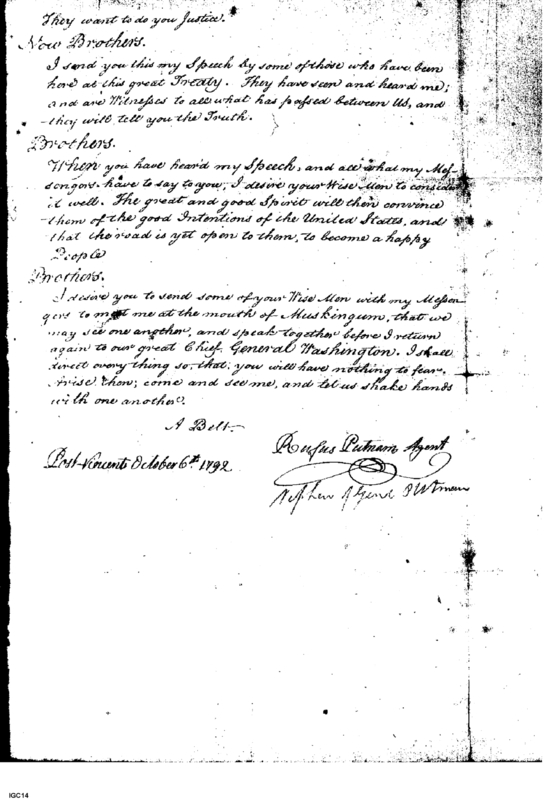 They want to do you Justice.
Now Brothers.
I send you this my Speech by some of those who have been
here at this great Treaty. They have seen and heard me;
and are Witnesses to all what has passed between Us, and
they will tell you the Truth.
Brothers.
When you have heard my Speech, and all what my Mes-
sengers have to say to you; I desire your Wise Men to consider
it well. The great and good Spirit will then convince
them of the good Intentions of the United States, and
that the road is yet open to them, to become a happy
People
Brothers.
I desire you to send some of your Wise Men with my Messen
gers to meet me at the mouth of Muskingum, that we
may see one another, and speak together before I return
again to our great Chief General Washington. I shall
direct every thing so, that, you will have nothing to fear.
Arise then; come and see me, and let us shake hands
with one another.
A Belt
Rufus Putnam Agent
Post-Vincents October 6th. 1792
of Genl Putnam
IGC14